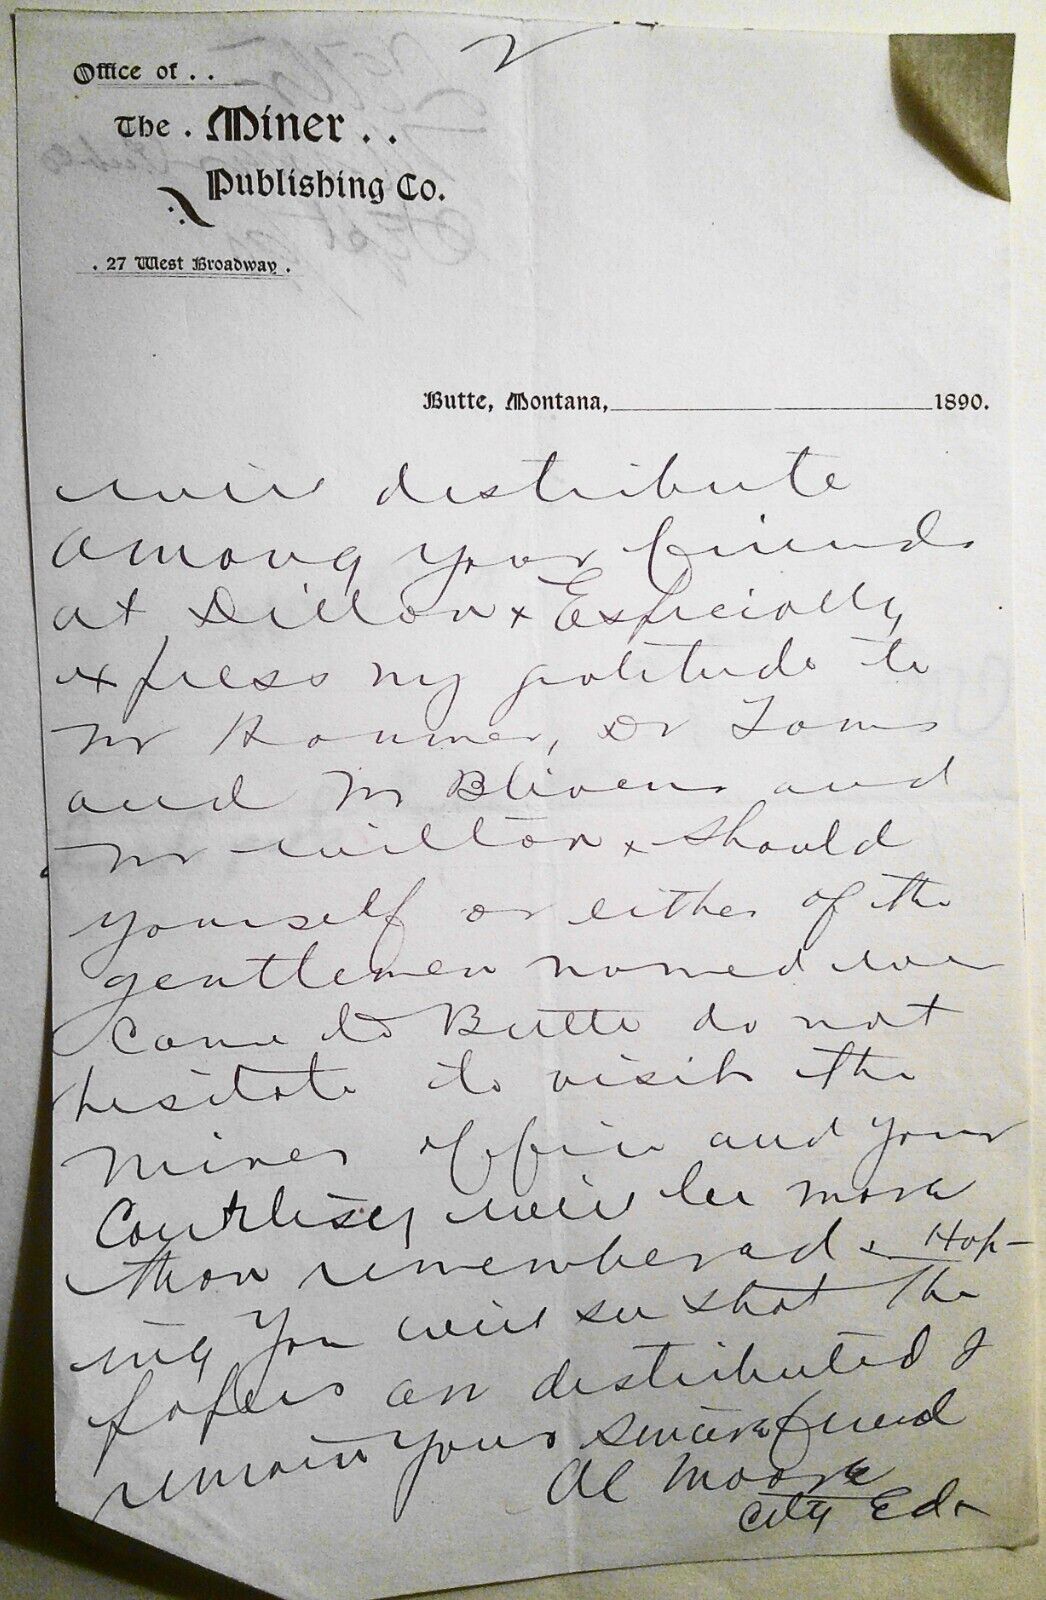 2
Office of . .
The . Miner . .
Publishing Co.
. 27 West Broadway .
Butte, Montana, 1890.
will distribute
among your friends
at Dillon x Especially
express my gratitude to
Mr Dr
and Mr Blivens and
Mr Wilton x should
yourself or either of the
gentlemen named ever
come to Butte do not
hesitate to visit the
Miner office and your
Courtesy will be more
than remembered x Hop-
ing you will see that the
papers are distributed I
remain your sincere friend
Al Moore
City Ed